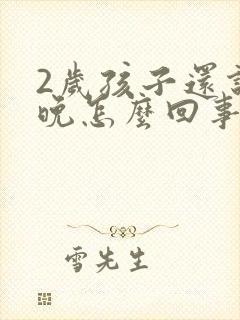 2歲孩子還
晚怎麼回事
雪先生